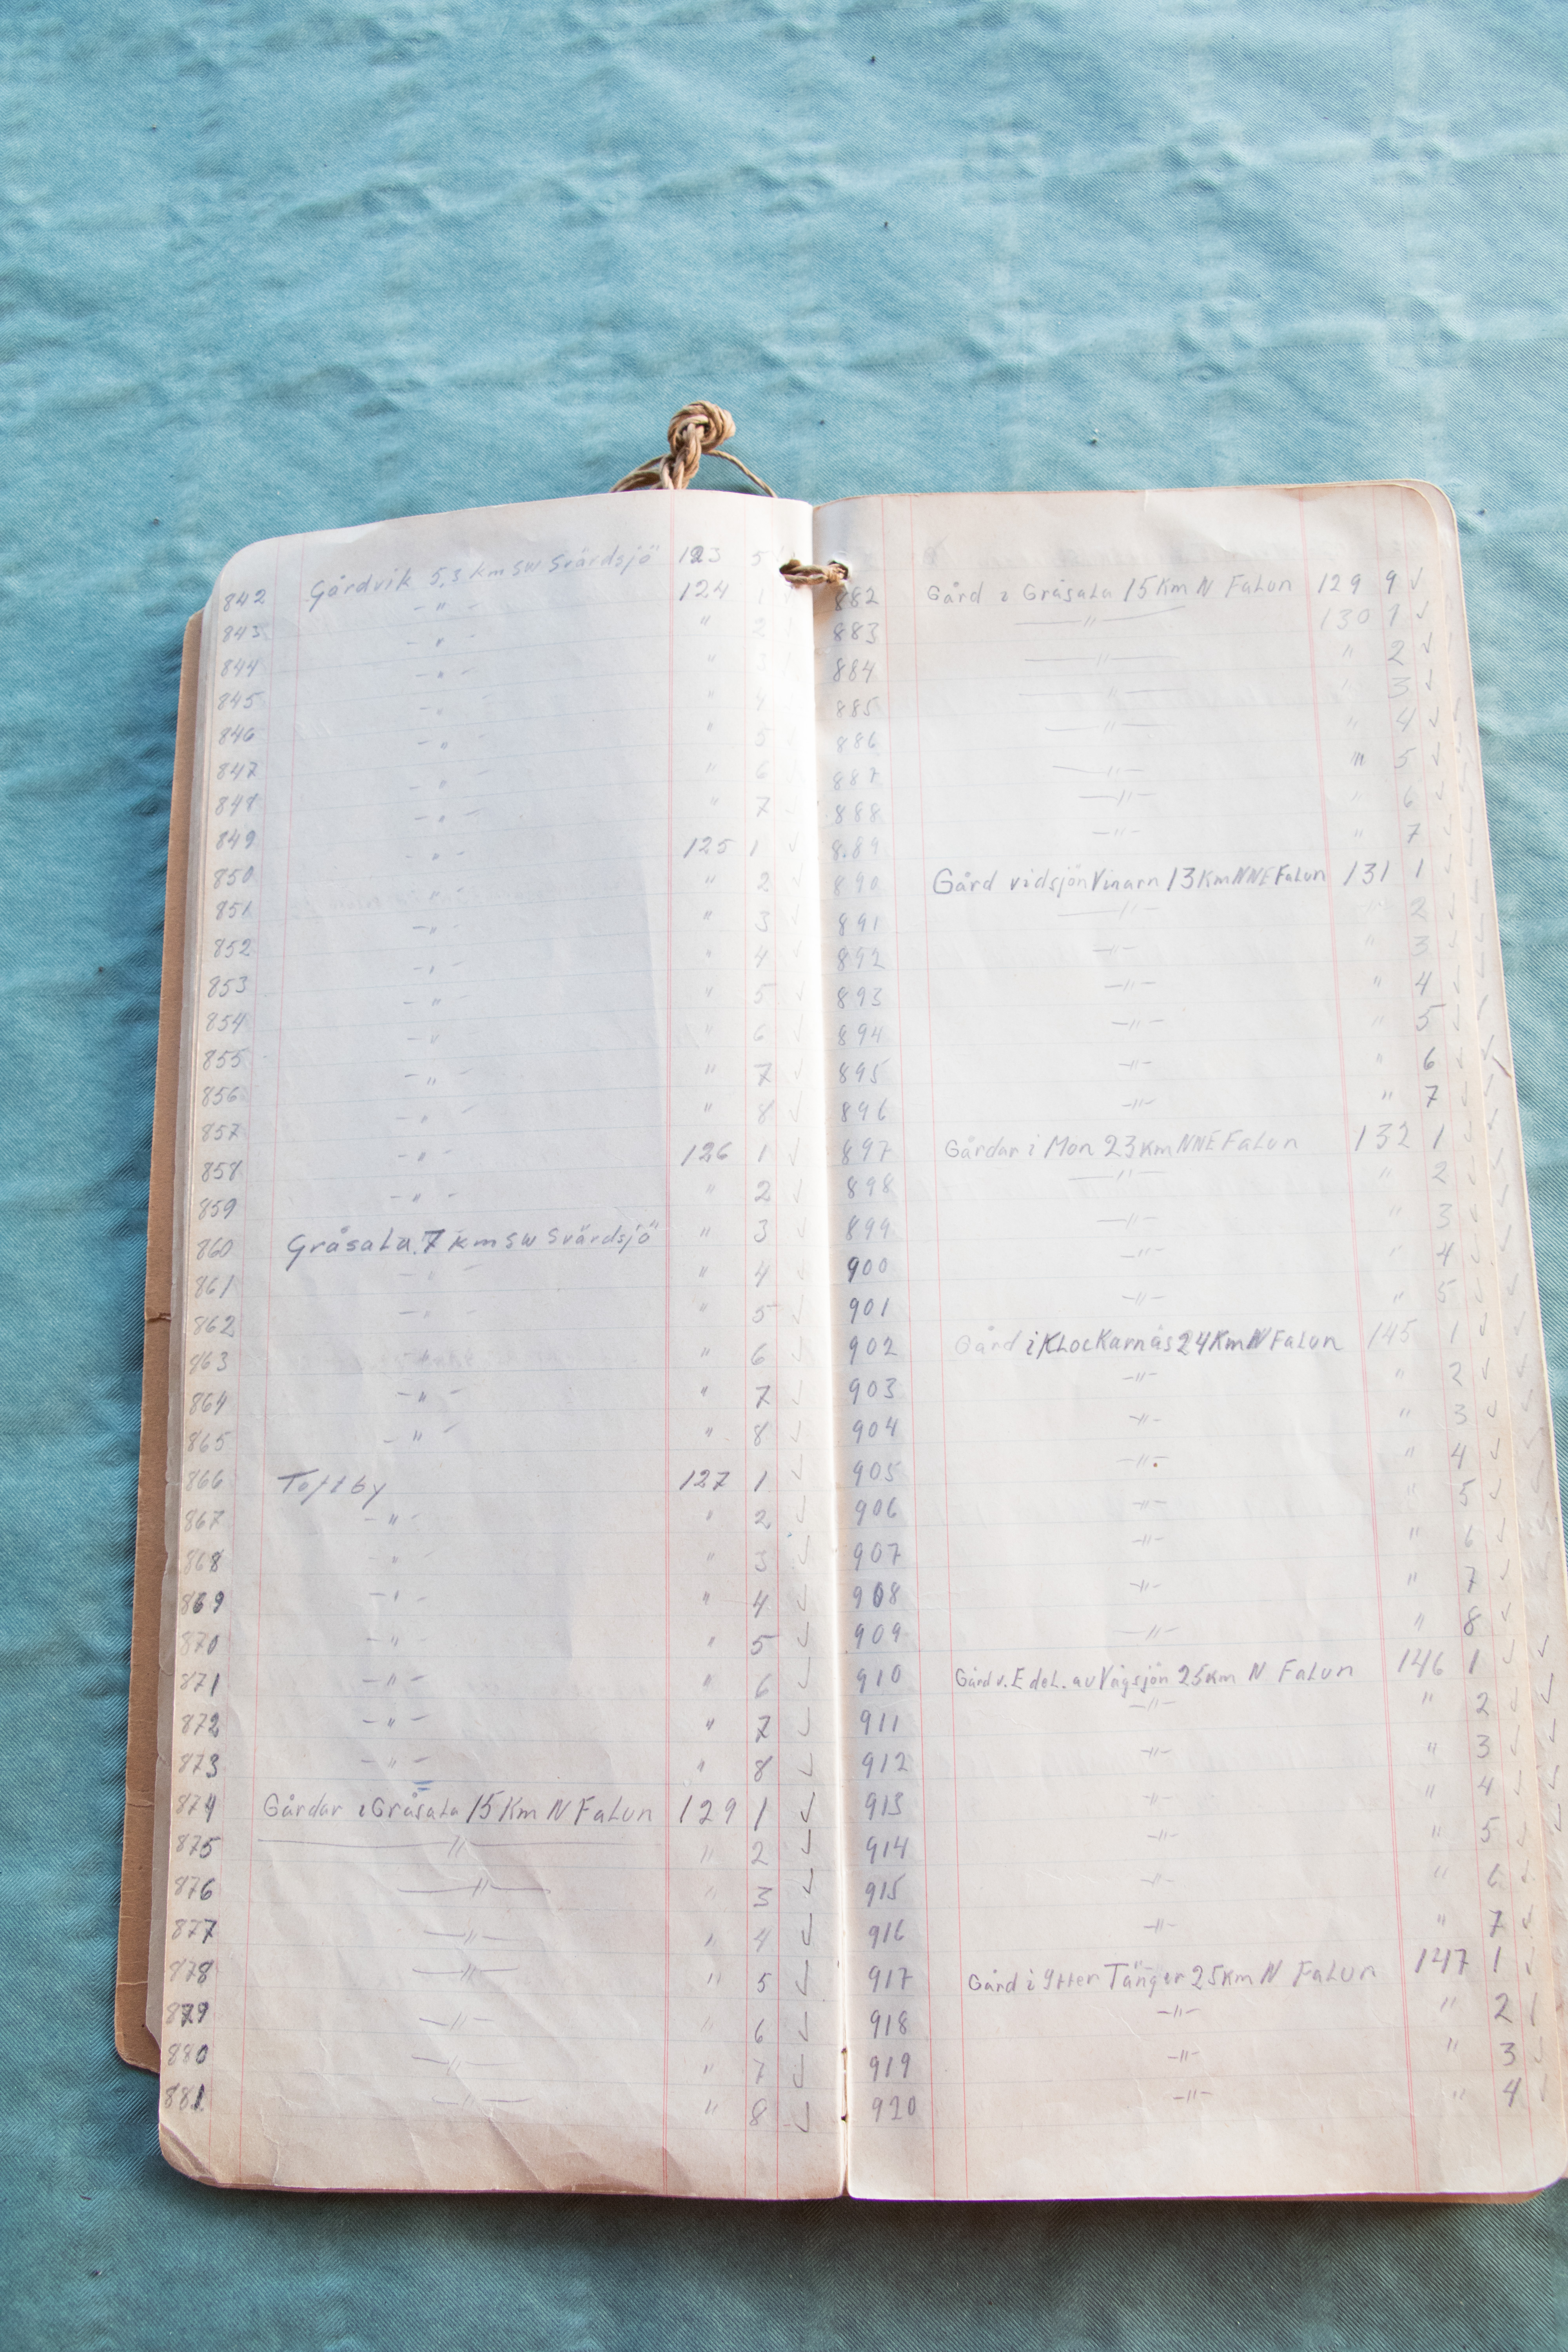 842 Gårdvik 5,3 km SW Svärdsjö 123 5
843 -"- 124 1
844 -"- " 2
845 -"- " 3
846 -"- " 4
847 -"- " 5
848 -"- " 6
849 -"- " 7
850 -"- 125 1 ✓
851 -"- " 2 ✓
852 -"- " 3 ✓
853 -"- " 4 ✓
854 -"- " 5 ✓
855 -"- " 6 ✓
856 -"- " 7 ✓
857 -"- " 8 ✓
858 -"- 126 1 ✓
859 -"- " 2 ✓
860 Gråsala 7 km SW Svärdsjö " 3 ✓
861 -"- " 4 ✓
862 -"- " 5 ✓
863 " 6 ✓
864 -"- " 7 ✓
865 -"- " 8 ✓
866 Toftby 127 1 ✓
867 -"- " 2 ✓
868 -"- " 3 ✓
869 -"- " 4 ✓
870 -"- " 5 ✓
871 -"- " 6 ✓
872 -"- " 7 ✓
873 -"- " 8 ✓
874 Gårdar i Gråsala 15 Km N Falun 129 1 ✓
875 -"- " 2 ✓
876 -"- " 3 ✓
877 -"- " 4 ✓
878 -"- " 5 ✓
879 -"- " 6 ✓
880 -"- " 7 ✓
881 -"- " 8 ✓
882 Gård i Gråsala 15 Km N Falun 129 9 ✓
883 -"- 130 1 ✓
884 -"- " 2 ✓
885 -"- " 3 ✓
886 -"- " 4 ✓
887 -"- " 5 ✓
888 -"- " 6 ✓
889 -"- " 7 ✓
890 Gård vid sjön Vinarn 13 Km NNE Falun 131 1 ✓
891 -"- " 2 ✓
892 -"- " 3 ✓
893 -"- " 4 ✓
894 -"- " 5 ✓
895 -"- " 6 ✓
896 -"- " 7 ✓
897 Gårdar i Mon 23 Km NNE Falun 132 1 ✓
898 -"- " 2 ✓
899 -"- " 3 ✓
900 -"- " 4 ✓
901 -"- " 5 ✓
902 Gård i Klockarnäs 24 Km N Falun 145 1 ✓
903 -"- " 2 ✓
904 -"- " 3 ✓
905 -"- " 4 ✓
906 -"- " 5 ✓
907 -"- " 6 ✓
908 -"- " 7 ✓
909 -"- " 8 ✓
910 Gård v. E del. av Vågsjön 25 Km N Falun 146 1 ✓
911 -"- " 2 ✓
912 -"- " 3 ✓
913 -"- " 4 ✓
914 -"- " 5 ✓
915 -"- " 6 ✓
916 -"- " 7 ✓
917 Gård i Ytter Tänger 25 Km N Falun 147 1 ✓
918 -"- " 2 ✓
919 -"- " 3 ✓
920 -"- " 4 ✓